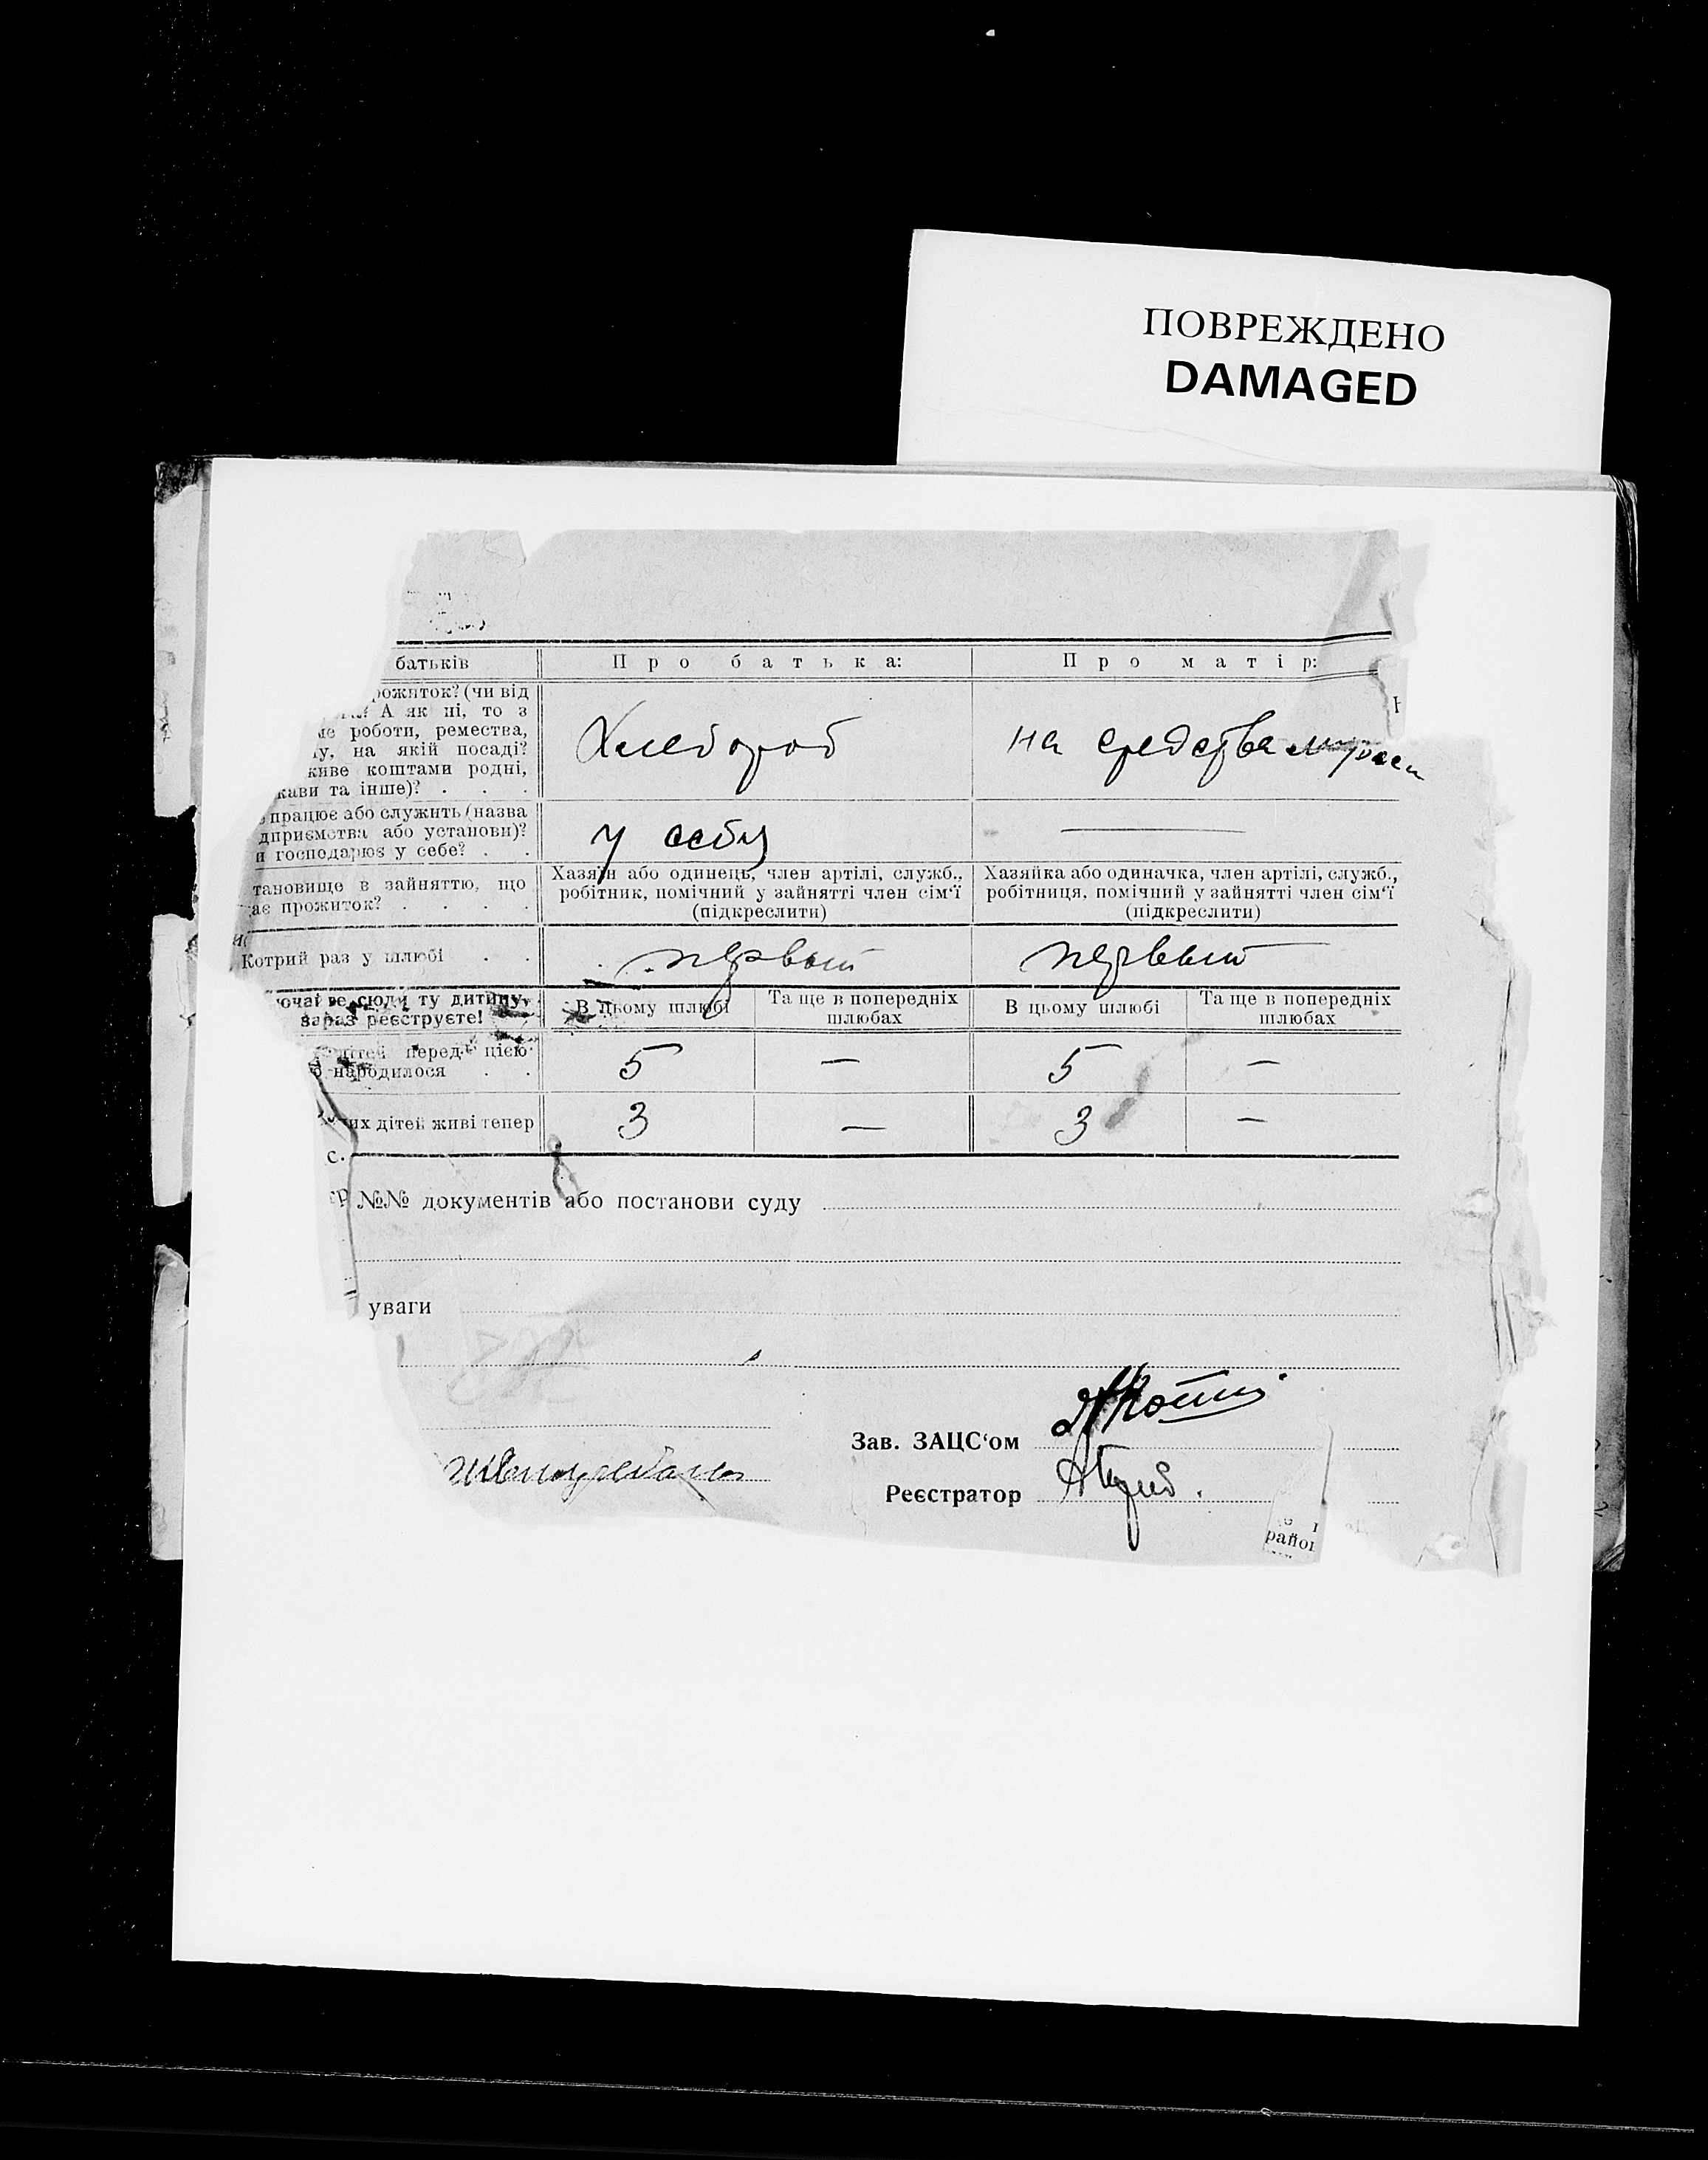 ПОВРЕЖДЕНО
DAMAGED
батьків Про батька: Про матір:
рожиток? (чи від
А як ні, то з
роботи, ремества,
на якій посаді?
живе коштами родні,
кави та інше)? . . .
Хлебороб на средства мужа
працює або служить (назва
дприємства або установи)?
и господарює у себе? . .
у себя —
тановище в зайняттю, що
ає прожиток? . . . .
Хазяїн або одинець, член артілі, служб., Хазяйка або одиначка, член артілі, служб.,
робітник, помічний у зайнятті член сім‘ї робітниця, помічний у зайнятті член сім‘ї
(підкреслити) (підкреслити)
Котрий раз у шлюбі . . первый первый
ючайте сюди ту дитину,
зараз реєструєте!
В цьому шлюбі Та ще в попередніх В цьому шлюбі Та ще в попередніх
шлюбах шлюбах
дітей перед цією
народилося . . 5 — 5 —
их дітей живі тепер 3 — 3 —
с.
№№ документів або постанови суду
уваги
Зав. ЗАЦС‘ом
Реєстратор
район